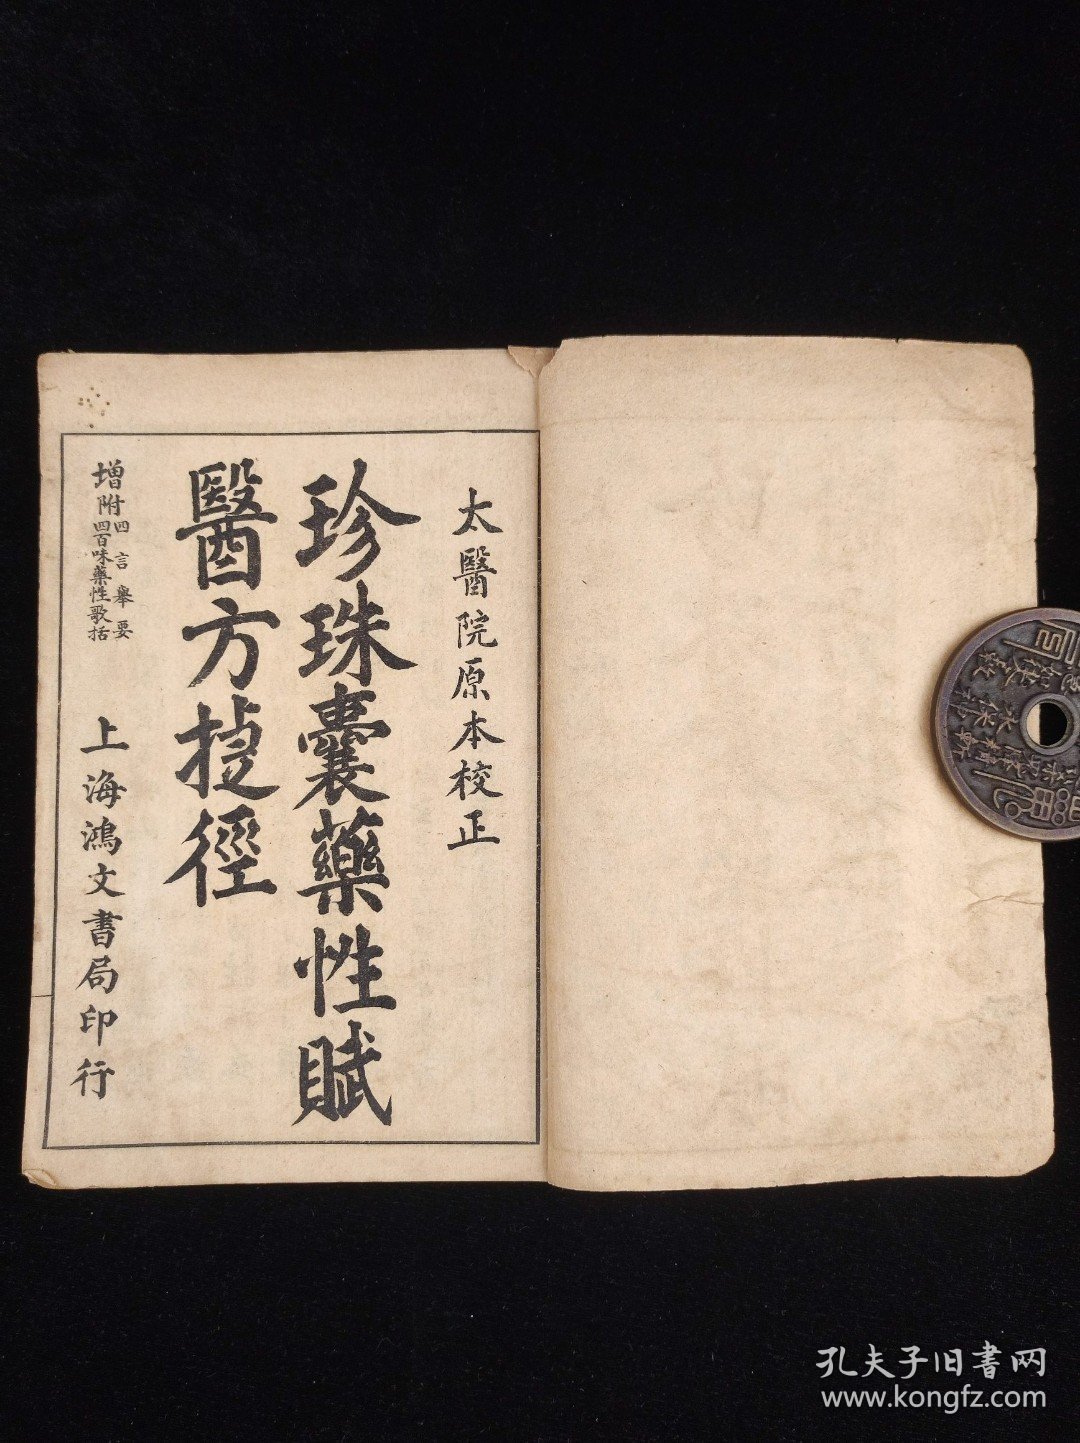 太醫院原本校正
珍珠囊藥性賦
醫方㨗徑
增附四言舉要
四百味藥性歌括
上海鴻文書局印行
孔夫子旧書网
www.kongfz.com